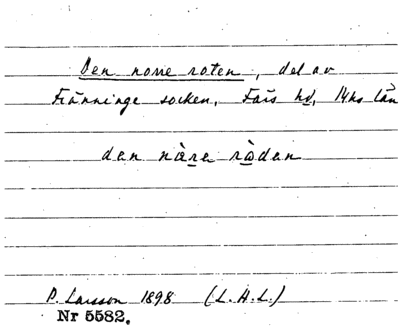 Den norre roten, del av
Fränninge socken, Färs hd, Mhs län
den nære råden
P. Larsson 1898 (L.H.L.)
Nr 5582.